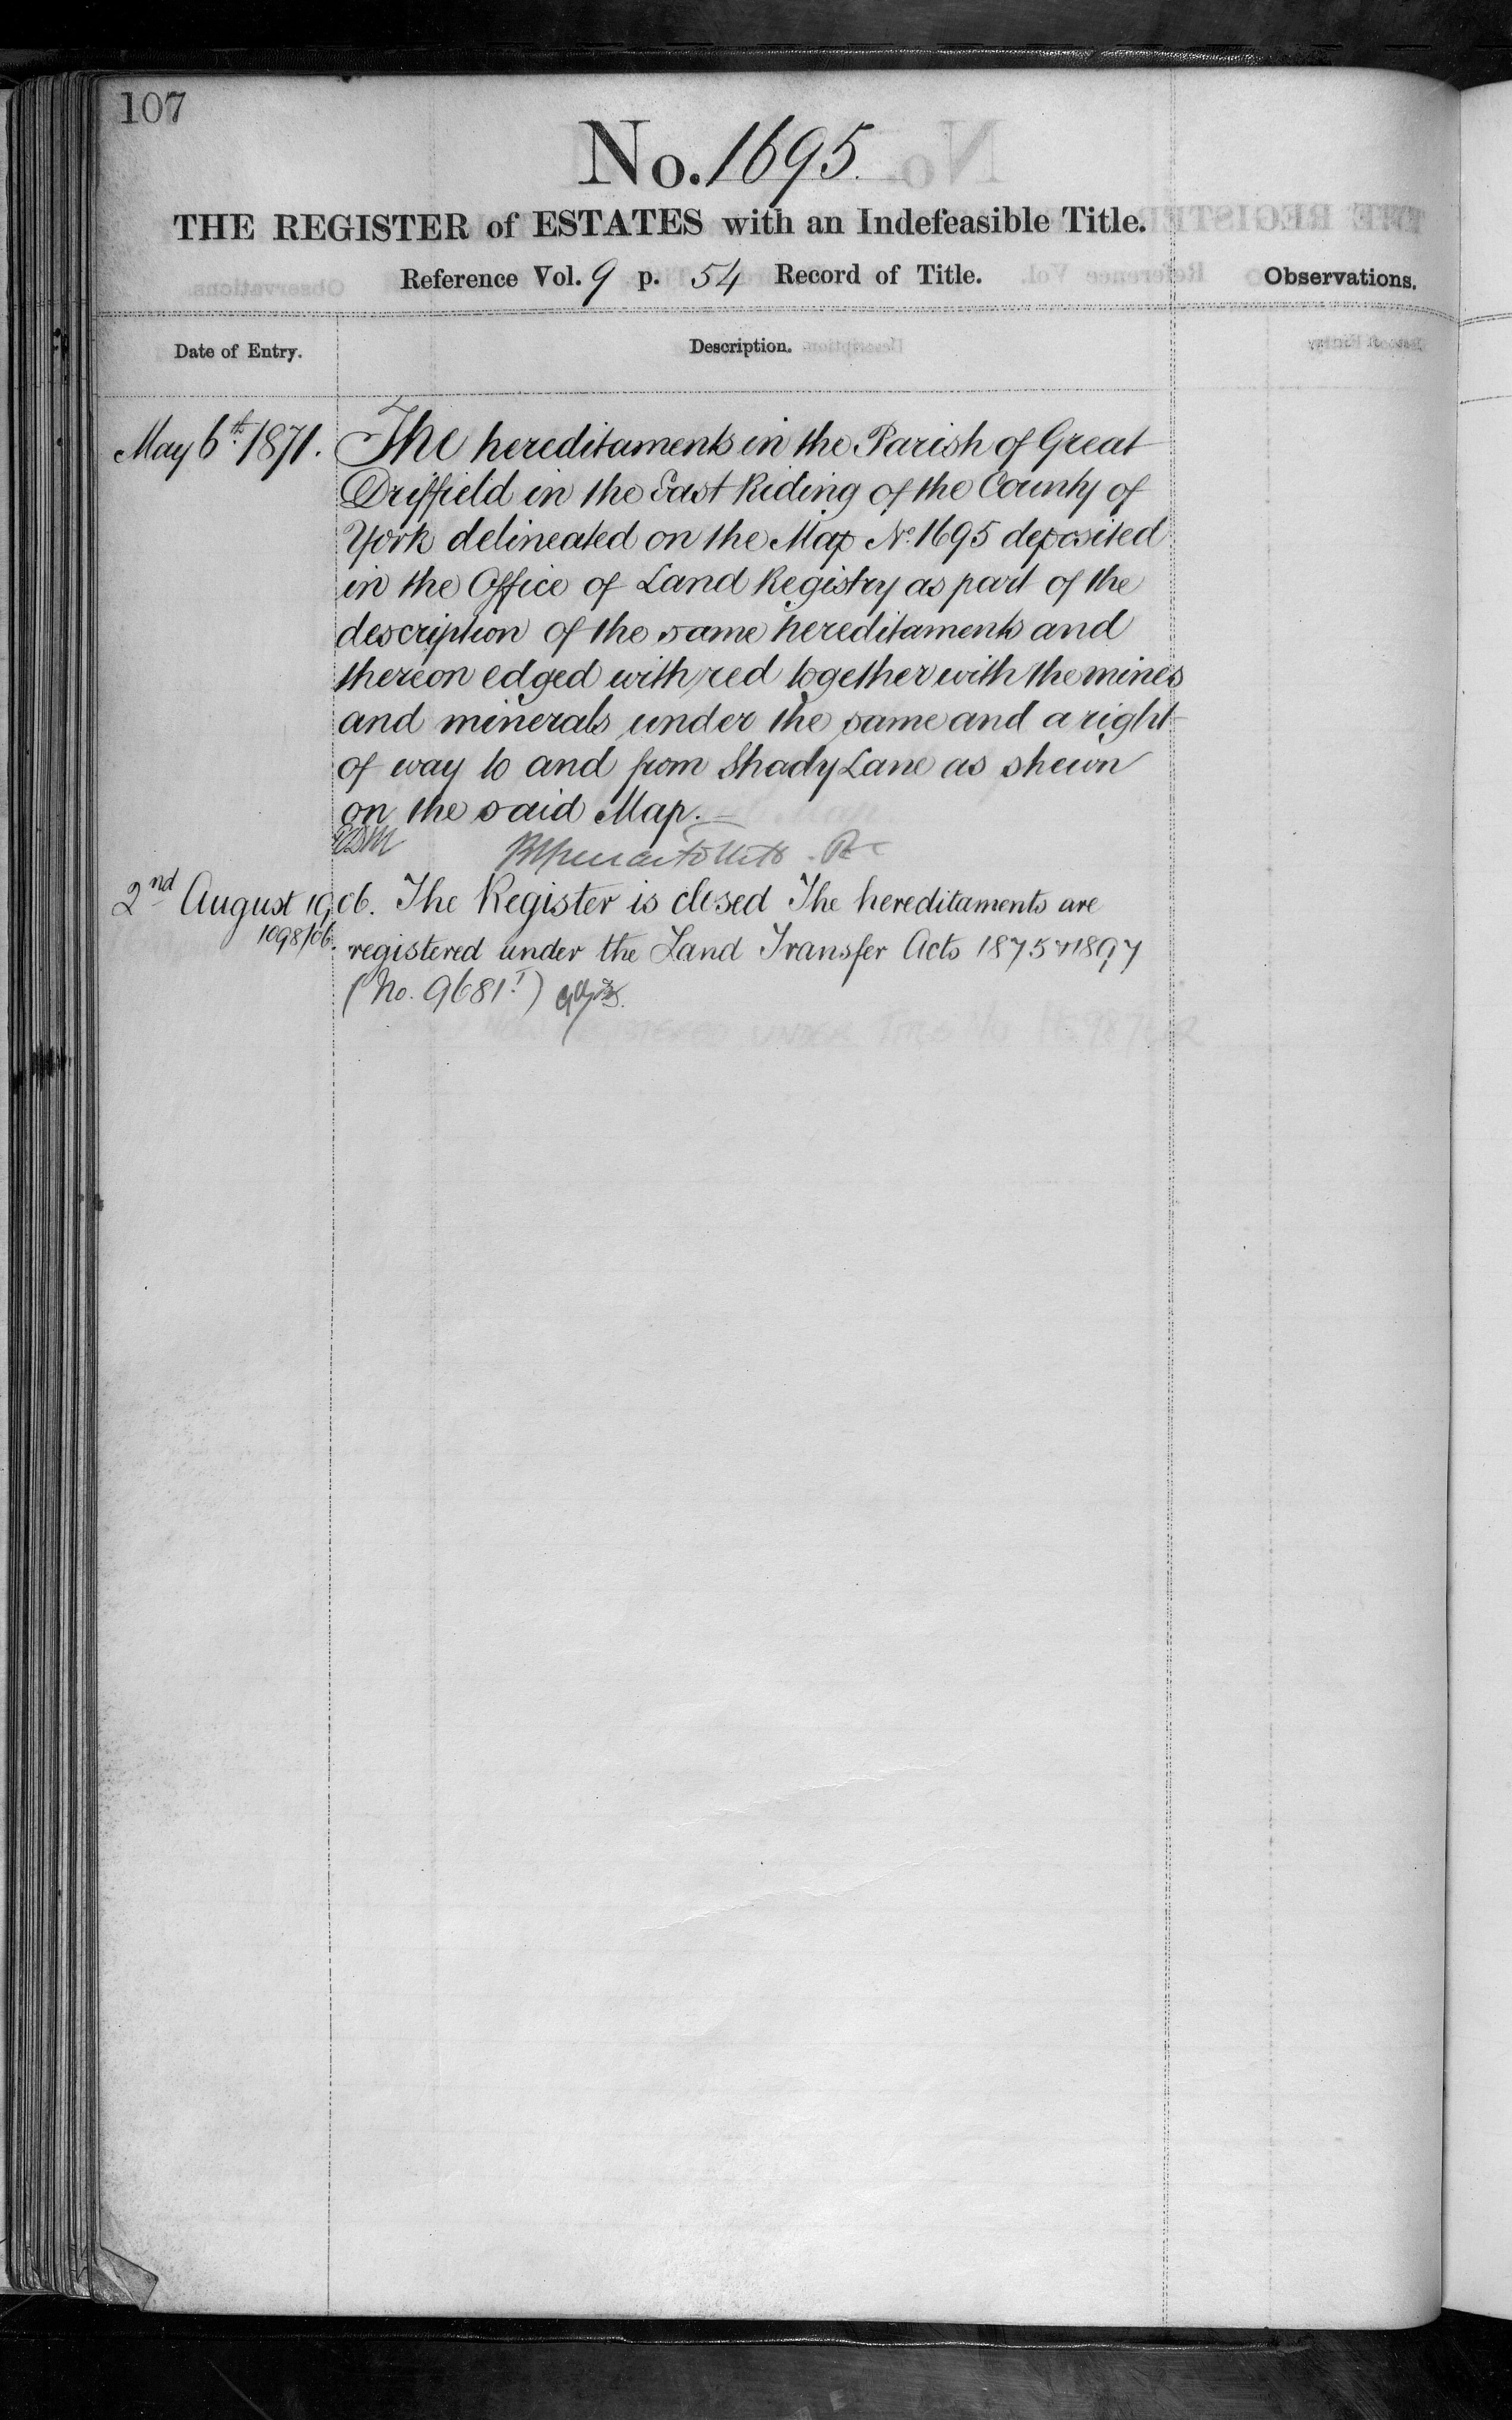 107
No. 1695.
THE REGISTER of ESTATES with an Indefeasible Title.
Reference Vol. 9 p. 54 Record of Title.
Observations.
Date of Entry.
Description.
May 6th 1871.
The hereditaments in the Parish of Great
Driffield in the East Riding of the County of
York delineated on the Map No. 1695 deposited
in the Office of Land Registry as part of the
description of the same hereditaments and
thereon edged with red together with the mines
and minerals under the same and a right
of way to and from Shady Lane as shewn
on the said Map.
2nd August 1906. The Register is closed The hereditaments are
1098/06. registered under the Land Transfer Acts 1875 & 1897
(No. 9681!)